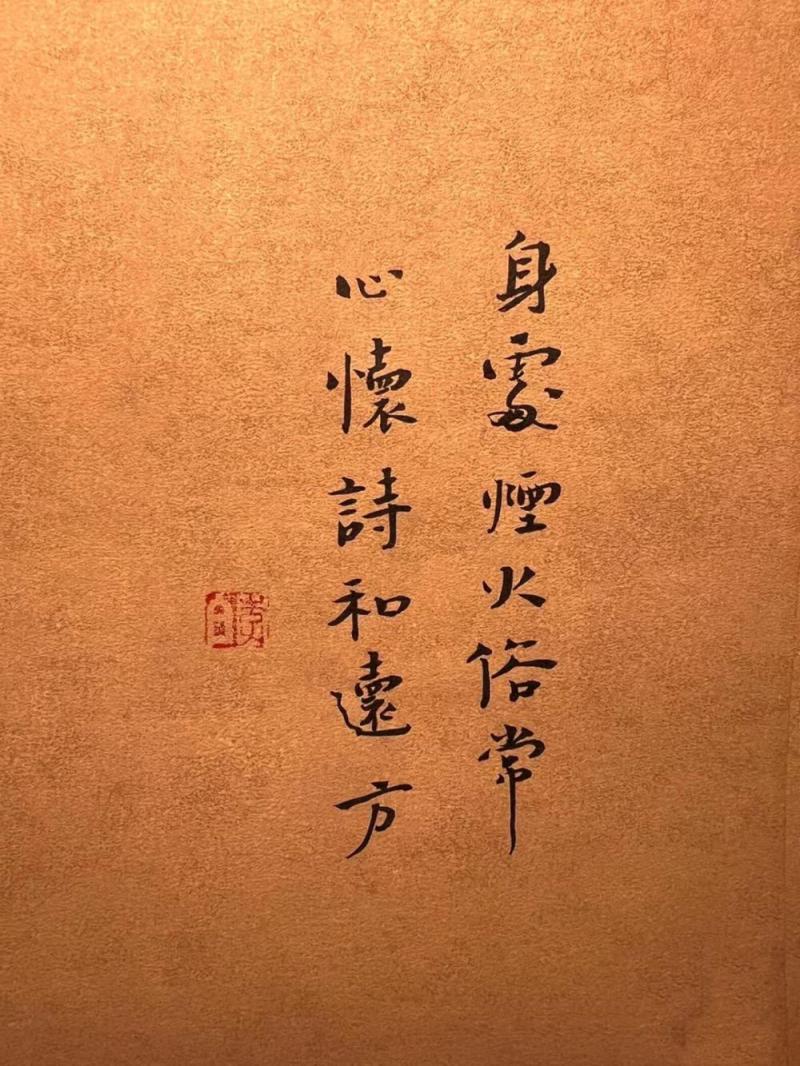 身處煙火俗常
心懷詩和遠方